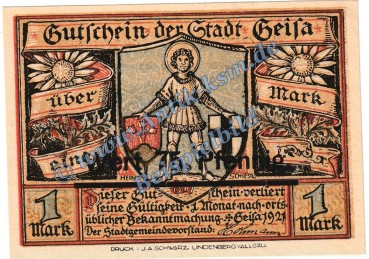 Gutschein der Stadt Geisa
über Mark
eine
Wert 75 Pfennig
Beispielbild
Dieser Gutschein verliert
seine Gültigkeit 1 Monat nach orts-
üblicher Bekanntmachung. Geisa 1921
Der Stadtgemeindevorstand:
1 Mark
1 Mark
DRUCK: J.A. SCHWARZ, LINDENBERG I/ALLGÄU.